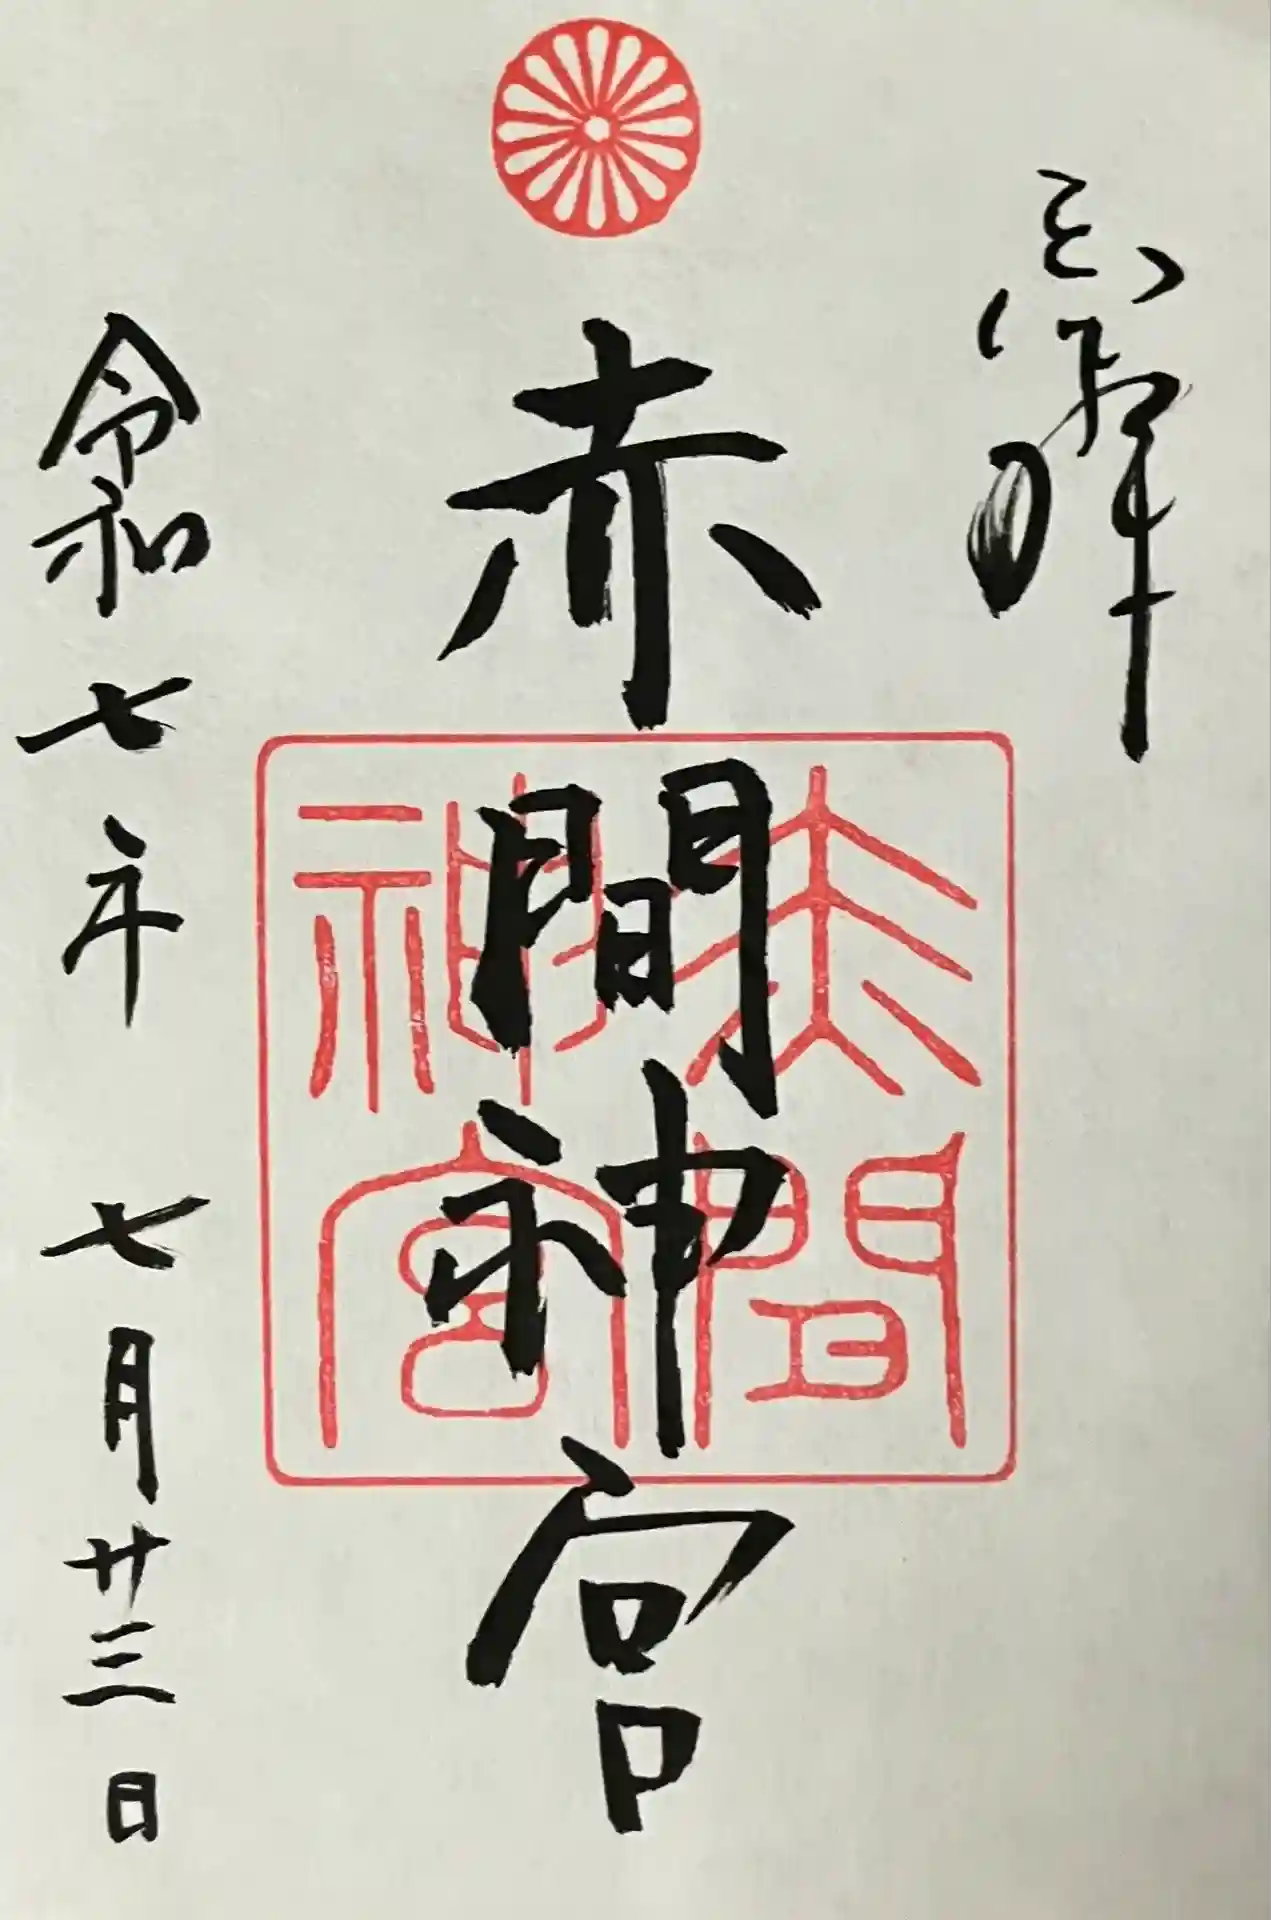 奉拝
赤間神宮
赤間
神宮
令和七年七月廿三日